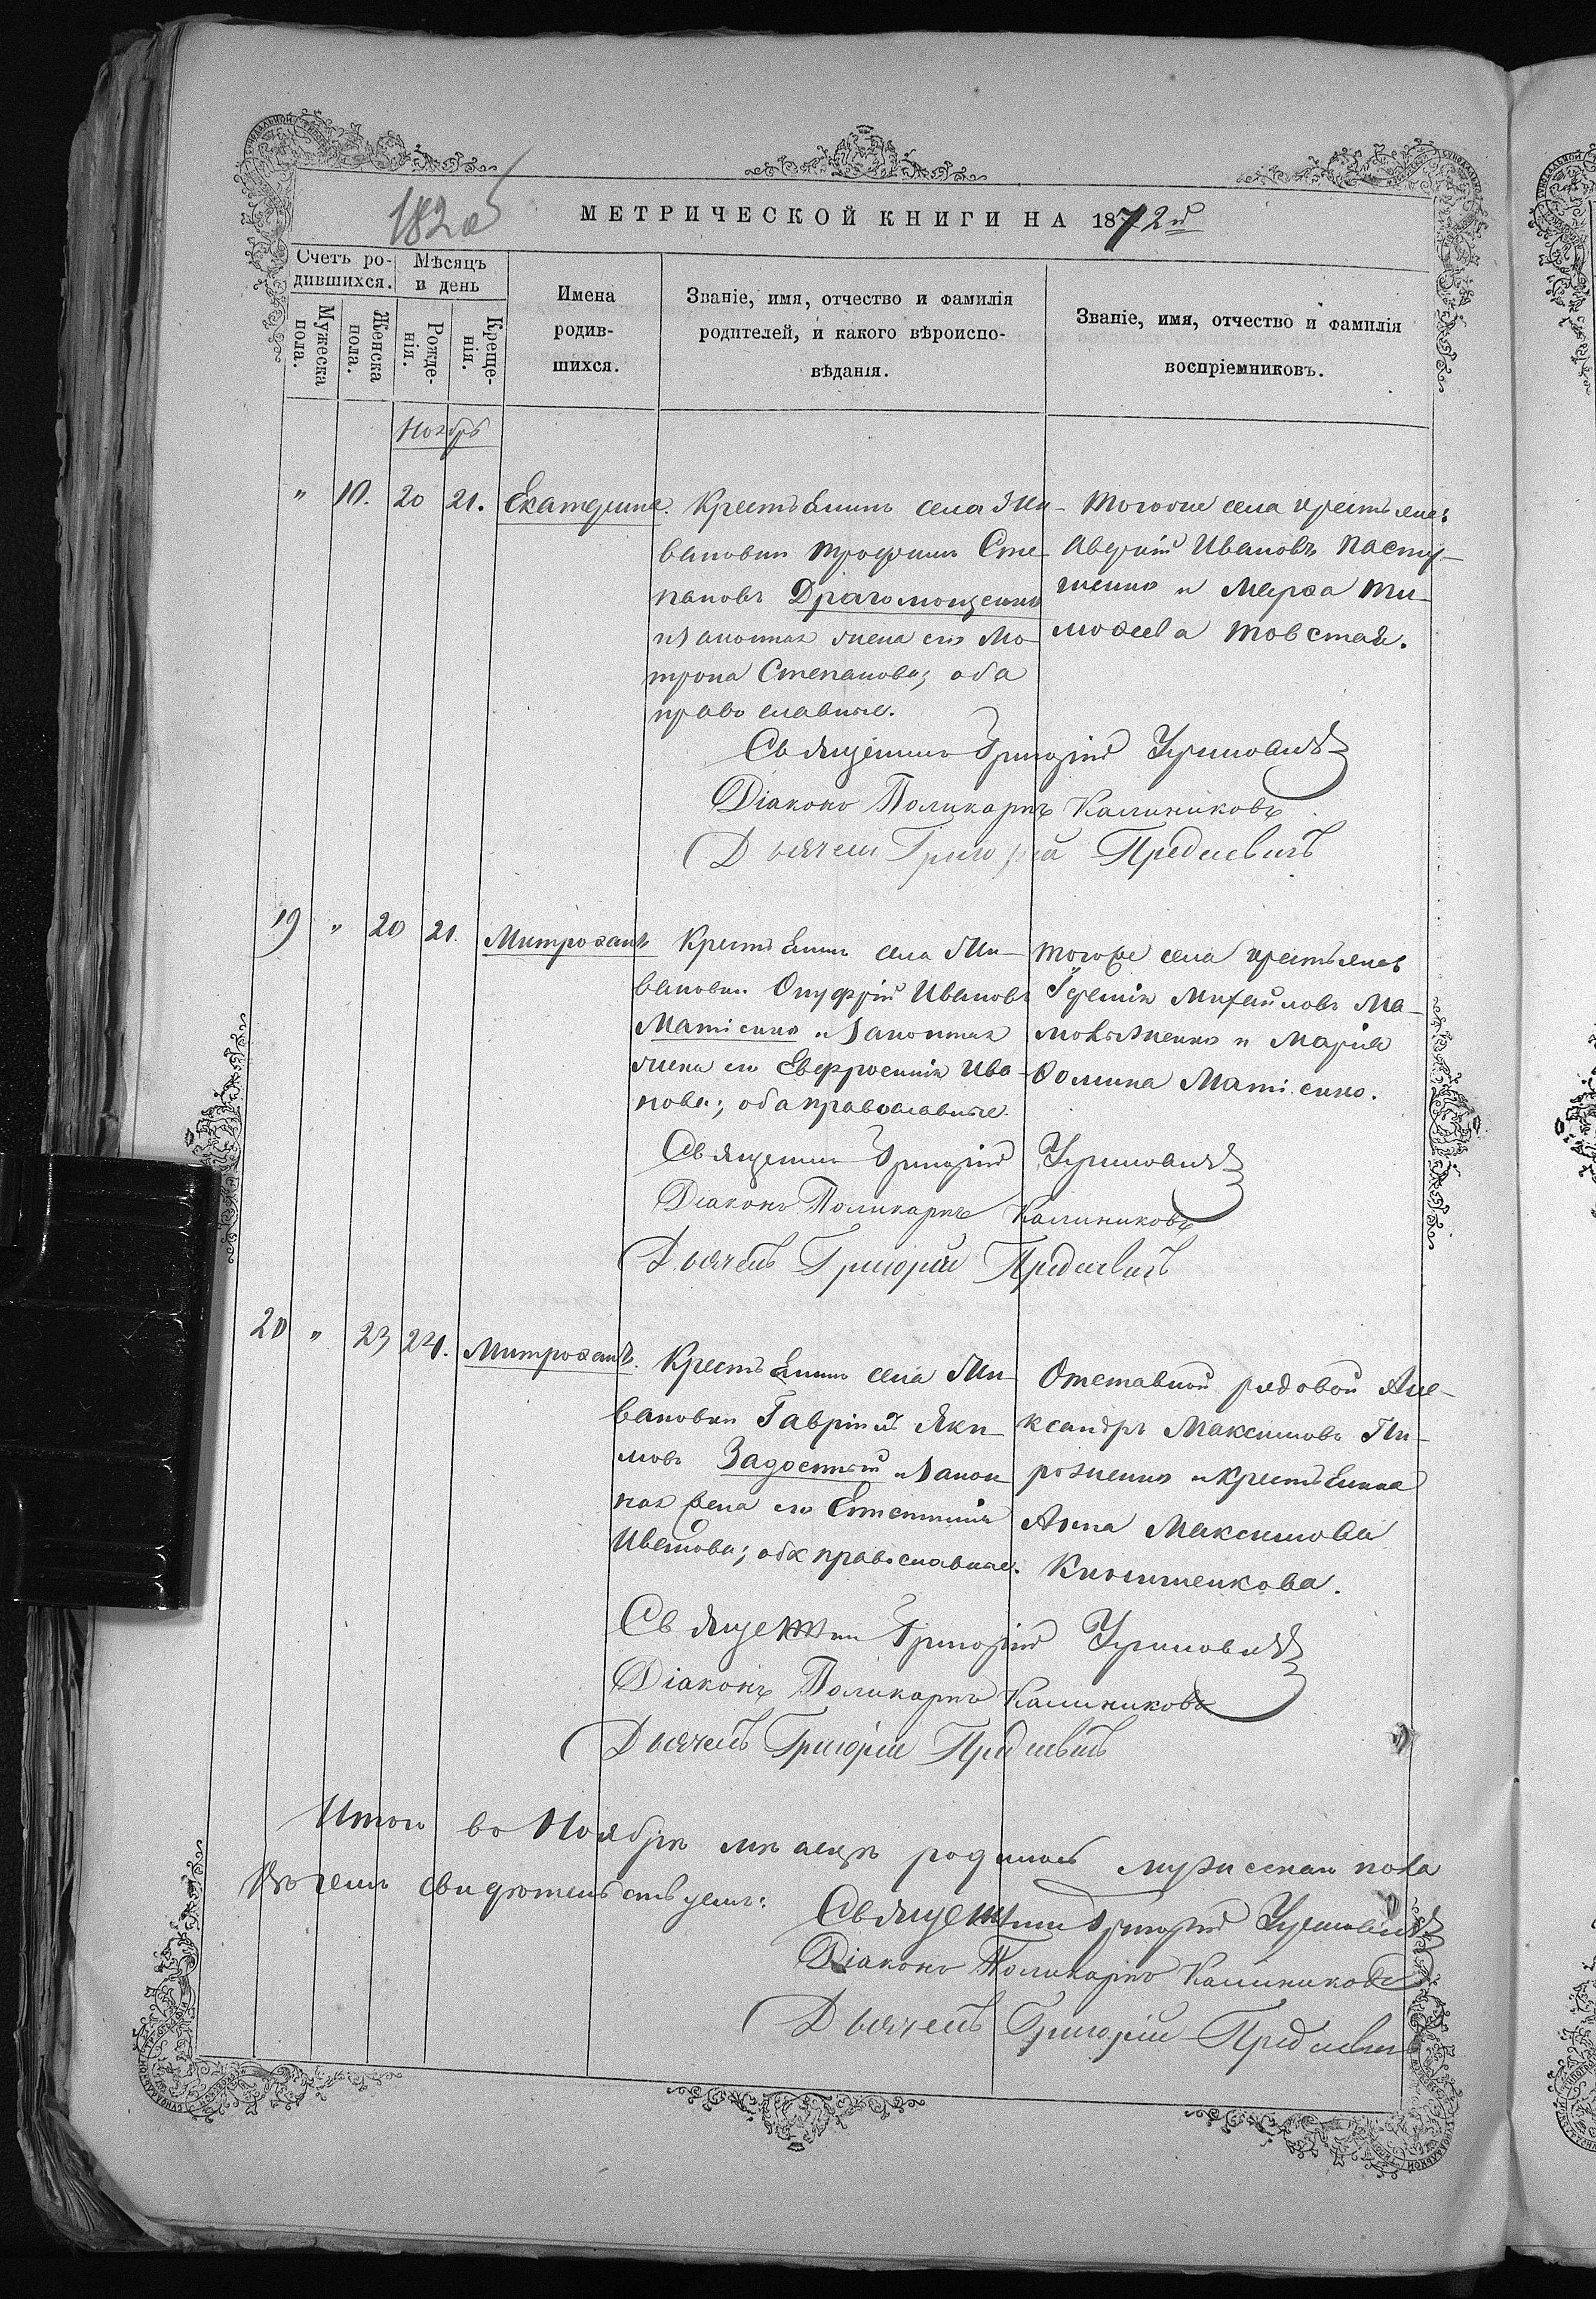 182 об
МЕТРИЧЕСКОЙ КНИГИ НА 1872й
Счетъ родившихся.
Мѣсяцъ и день
Мужеска пола.
Женска пола.
Рожденія.
Крещенія.
Имена родившихся.
Званіе, имя, отчество и фамилія родителей, и какого вѣроисповѣданія.
Званіе, имя, отчество и фамилія воспріемниковъ.
Ноябрь
" 10. 20 21. Екатерина.
Крестьянинъ села Жи-
вановки Трофимъ Сте-
пановъ Драгомощенко
и законная жена его Мо-
трона Степанова; оба
православные.
Тогоже села крестьяне:
Аверкій Ивановъ Пасту-
шенко и Марѳа Ти-
моѳеева Товстая.
Священникъ Григорій
Діаконъ Поликарпъ Калиниковъ
Дьячекъ Григорій
19 " 20 21. Митрофанъ
Крестьянинъ села Жи-
вановки Онуфрій Ивановъ
Матісико и законная
жена его Евфросинія Ива-
нова; оба православные.
Тогоже села крестьяне
Михаиловъ Ма-
и Марія
Ѳомина Матісико.
Священникъ Григорій
Діаконъ Поликарпъ Калиниковъ
Дьячекъ Григорій
20 " 23 24. Митрофанъ.
Крестьянинъ села Жи-
вановки Гавріилъ Яки-
мовъ и закон-
ная жена его
Иванова; оба православные.
Отставной рядовой Але-
ксандръ Максимовъ Пи-
роженко и крестьянка
Анна Максимова
Священникъ Григорій
Діаконъ Поликарпъ Калиниковъ
Дьячекъ Григорій
Итого въ Ноябрѣ мѣсяцѣ родилось мужескаго пола
въ чемъ свидѣтельствуемъ:
Священникъ Григорій
Діаконъ Поликарпъ Калиниковъ
Дьячекъ Григорій